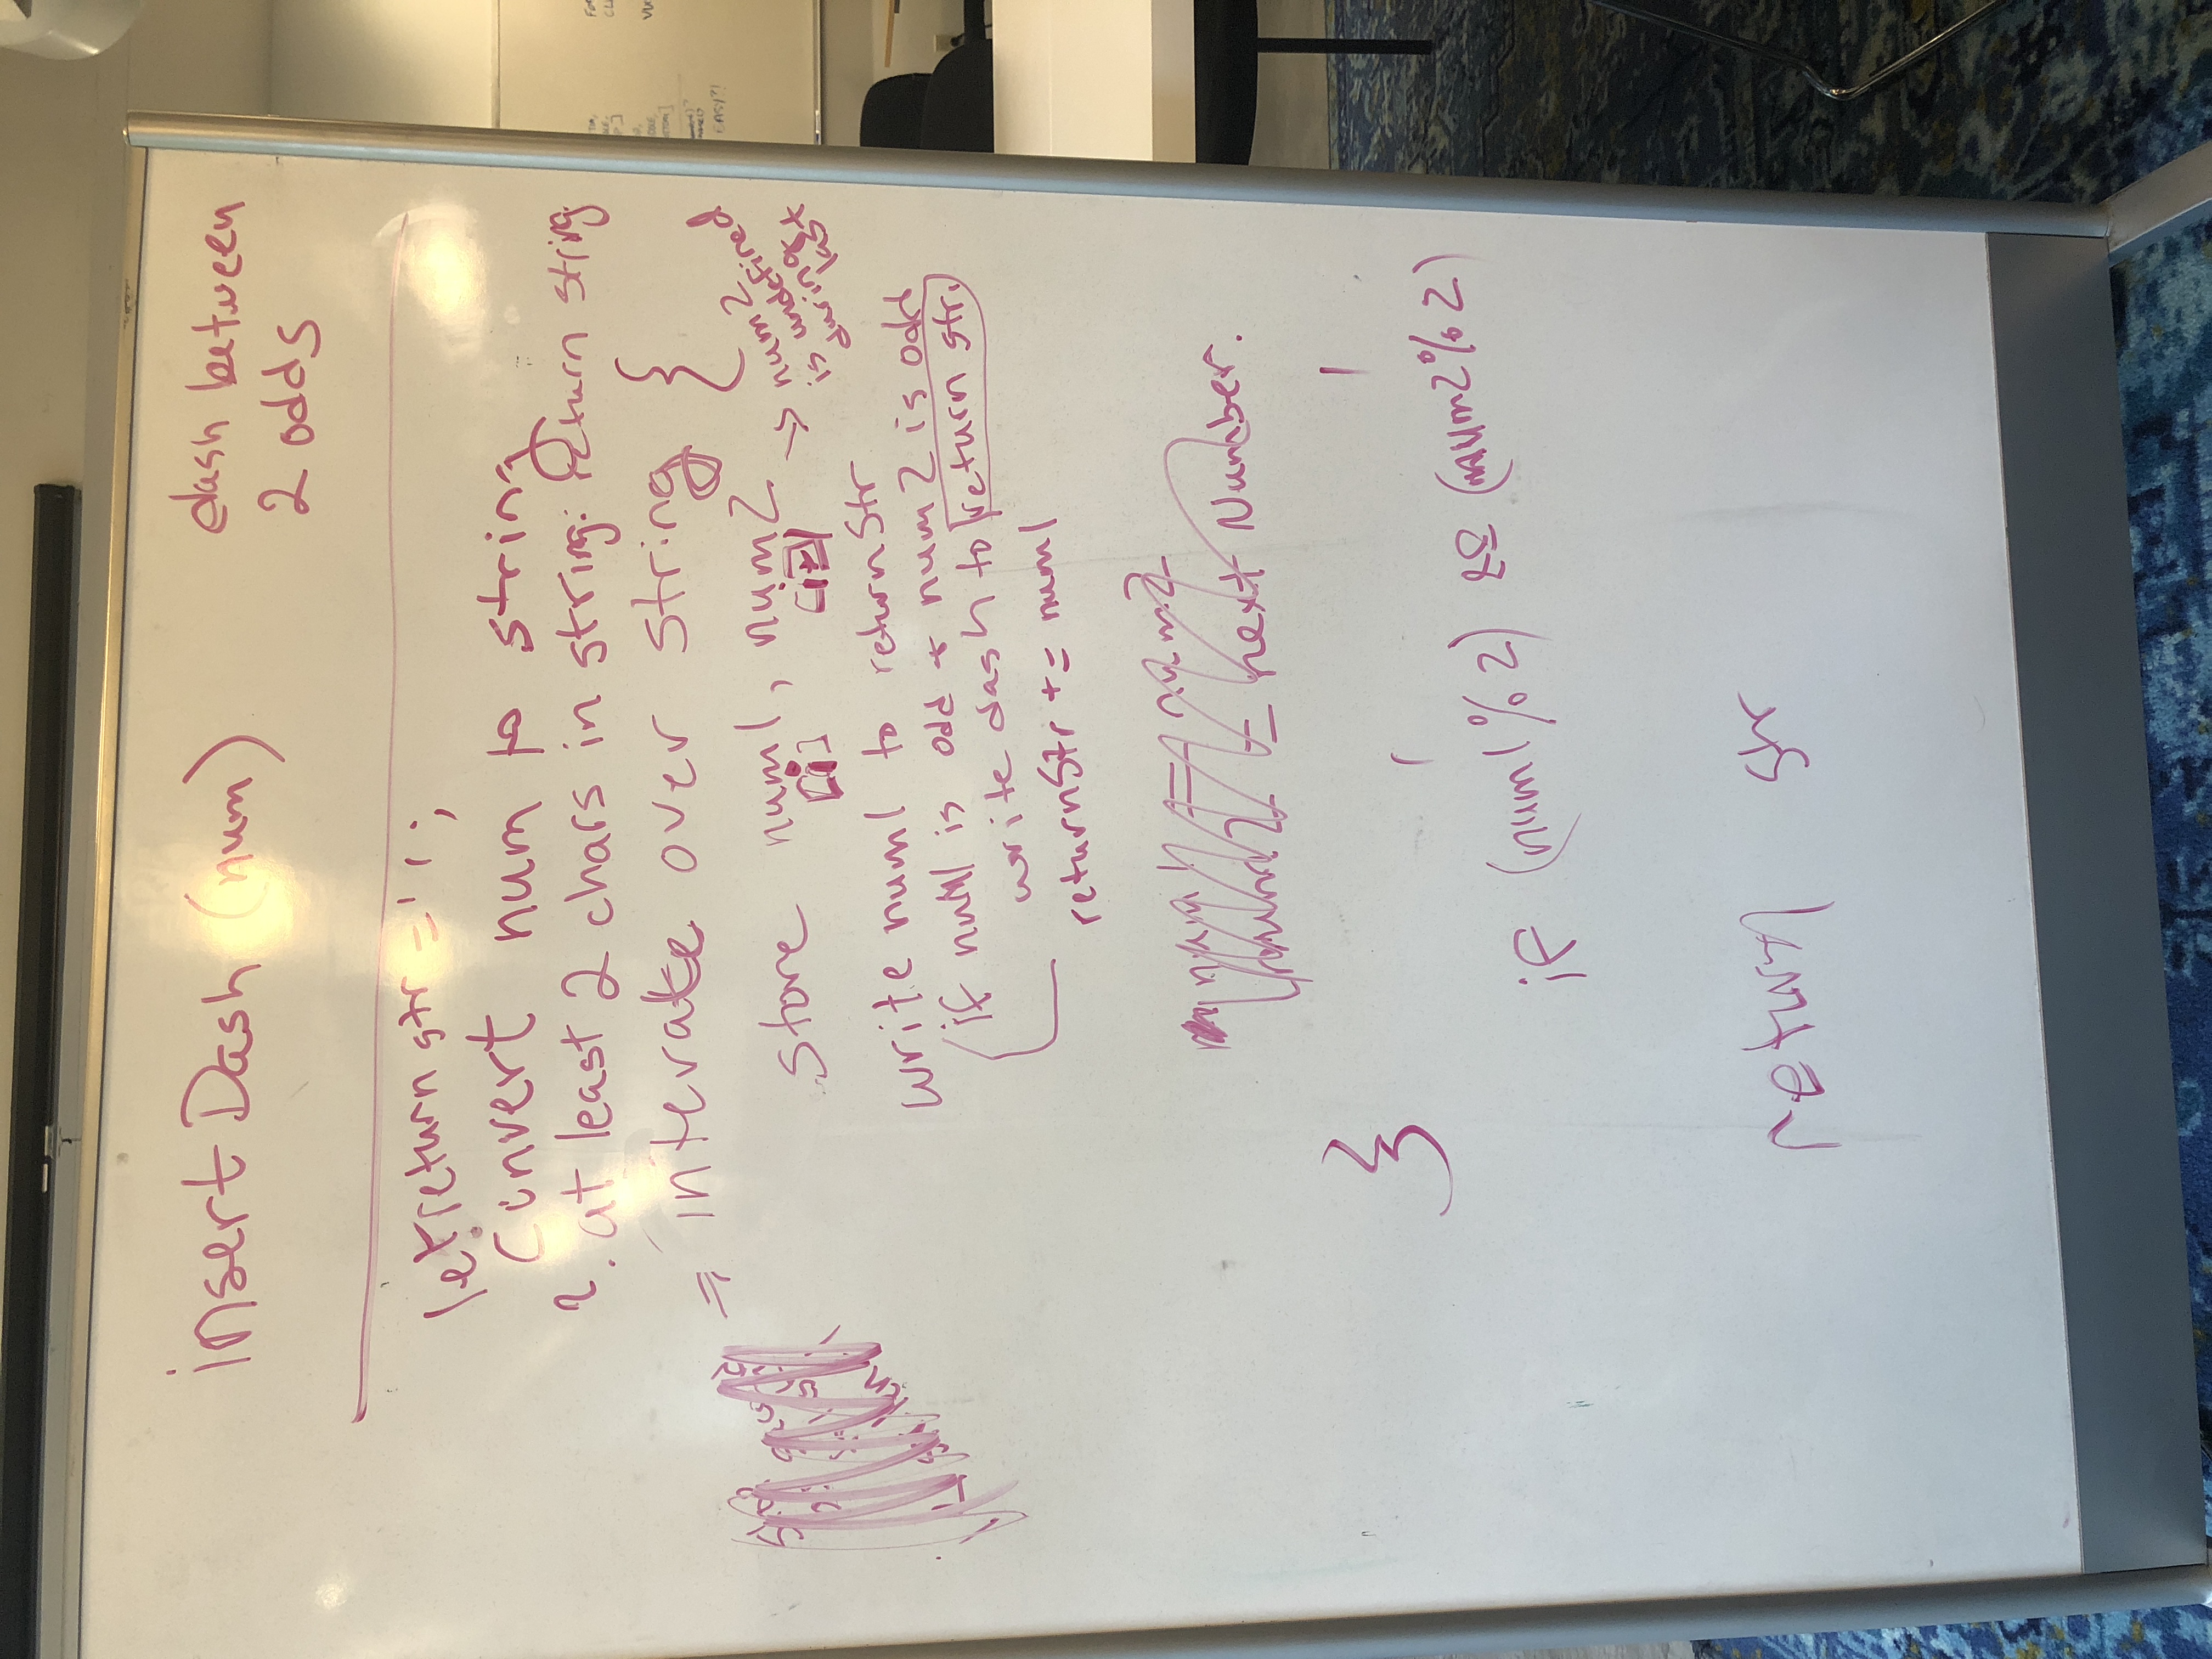 insertDash (num)
dash between
2 odds
let returnstr = ' ';
Convert num to string
? . at least 2 chars in string: return string
= interate over string {
store num1, num2
[i]
→ num2
is undefined
during
last
write num1 to returnStr
if num1 is odd + num2 is odd
write dash to return str.
returnStr += num1
num1 = num2
num2 = next Number.
}
if (num1%2) && (num2%2)
return str
EASY?!